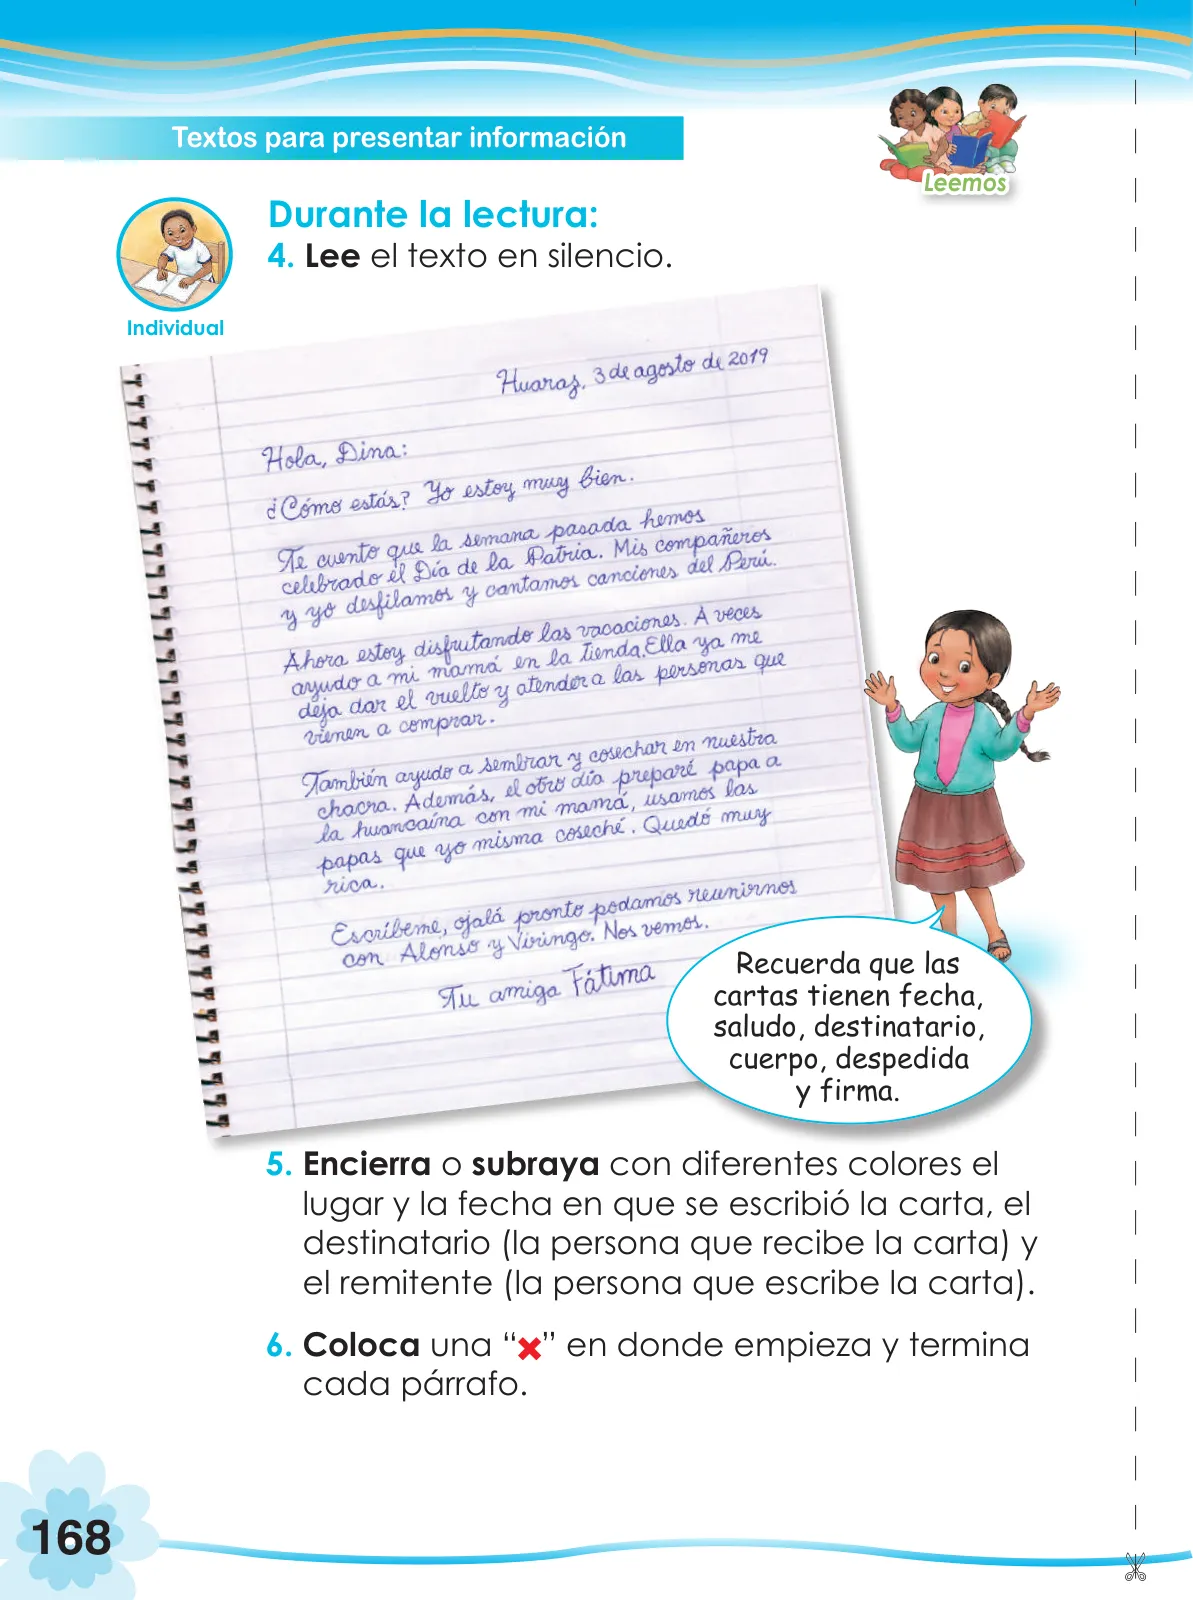 Textos para presentar información
Leemos
Durante la lectura:
4. Lee el texto en silencio.
Individual
Huaraz, 3 de agosto de 2019
Hola, Dina:
¿Cómo estás? Yo estoy muy bien.
Te cuento que la semana pasada hemos
celebrado el Día de la Patria. Mis compañeros
y yo desfilamos y cantamos canciones del Perú.
Ahora estoy disfrutando las vacaciones. A veces
ayudo a mi mamá en la tienda. Ella ya me
deja dar el vuelto y atender a las personas que
vienen a comprar.
También ayudo a sembrar y cosechar en nuestra
chacra. Además, el otro día preparé papa a
la huancaína con mi mamá, usamos las
papas que yo misma coseché. Quedó muy
rica.
Escríbeme, ojalá pronto podamos reunirnos
con Alonso y Viringo. Nos vemos.
Tu amiga Fátima
Recuerda que las
cartas tienen fecha,
saludo, destinatario,
cuerpo, despedida
y firma.
5. Encierra o subraya con diferentes colores el
lugar y la fecha en que se escribió la carta, el
destinatario (la persona que recibe la carta) y
el remitente (la persona que escribe la carta).
6. Coloca una “×” en donde empieza y termina
cada párrafo.
168